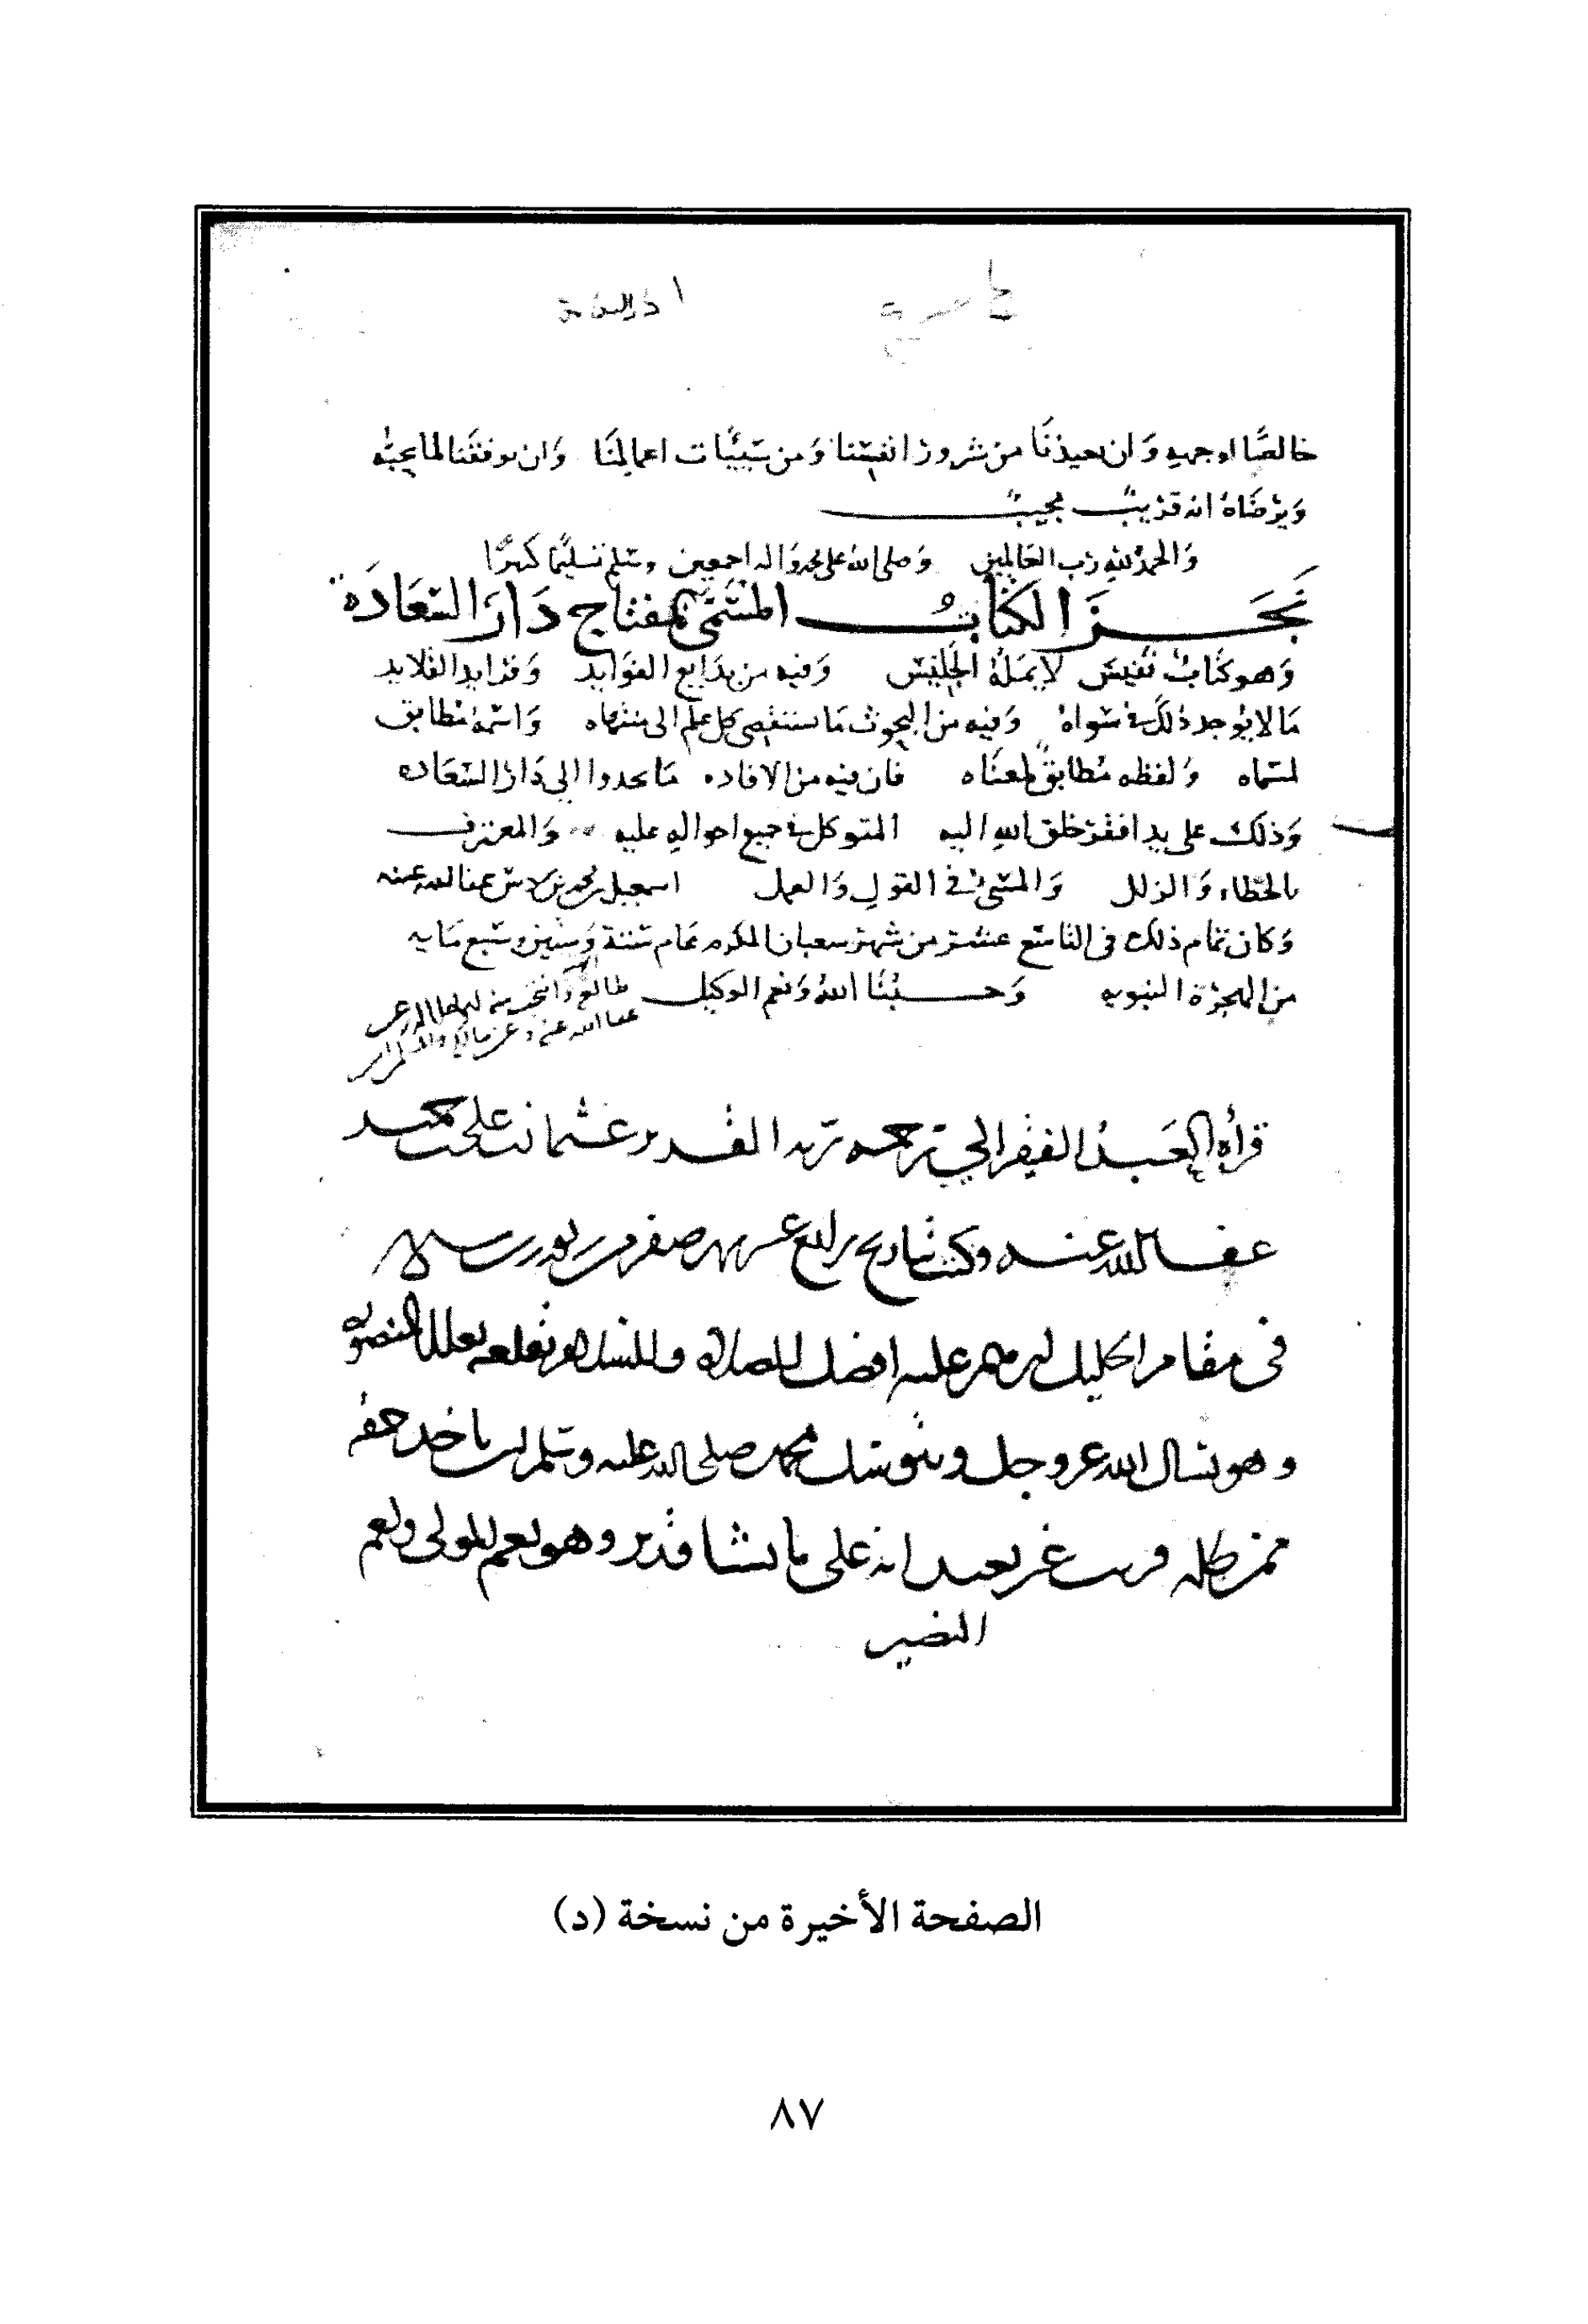 خالصًا لوجهه وَان يعيذنَا من شرور انفسنا وَمن سَيّئات اعمالنَا وَان يوفقنا لما يحبّه
وَيَرضَاهُ انه قريبٌ مجيبٌ
وَالحمدُ للهِ رَبِّ العَالمين وَصلى الله على محمد وَاله اجمعين وسَلم تسليمًا كثيرًا
نَجَزَ الكتَابُ المسَمّى بمفتاح دَار السّعَادَة
وَهو كتابٌ نفيسٌ لا يَملّهُ الجَليسُ وَفيه من بدَايع الفوَايد وَفرَايد القلايد
مَا لا يُوجد ذلكَ في سوَاهُ وَفيه من البحوث مَا يستقصى كل علم الى منتهاه وَاسمُهُ مُطابق
لمسَمّاه وَلفظه مُطابق لمعنَاه فان فيه من الافاده مَا يحدوا الى دَار السّعَاده
وَذلكَ على يد افقر خلق الله اليه المتوكل في جميع احوالهِ عليه وَالمعترف
بالخطاء وَالزلل وَالمسئ في القول وَالعمل اسمعيل بن محمد بن بردس عفا الله عنه
وَكان تمام ذلك في التاسع عشر من شهر شعبان المكرم عَام ستة وَستين وسَبع مَايه
من الهجرة النبويه وَحسبُنَا اللهُ وَنعم الوَكيل
قرأه العَبدُ الفقير الي رحمه ربه القدير عثمان
عفا الله عنه وكتب بتاريخ رابع عشر شهر صفر
في مقام الخليل ابرهيم عليه افضل الصلاه والسلام
وهو يسال الله عز وجل ويتوسل بمحمد صلى الله عليه وسلم ان ياخد حقه
ممن ظلمه قريب غير بعيد انه على ما يشا قدير وهو نعم المولى ونعم
النصير
الصفحة الأخيرة من نسخة (د)
٨٧